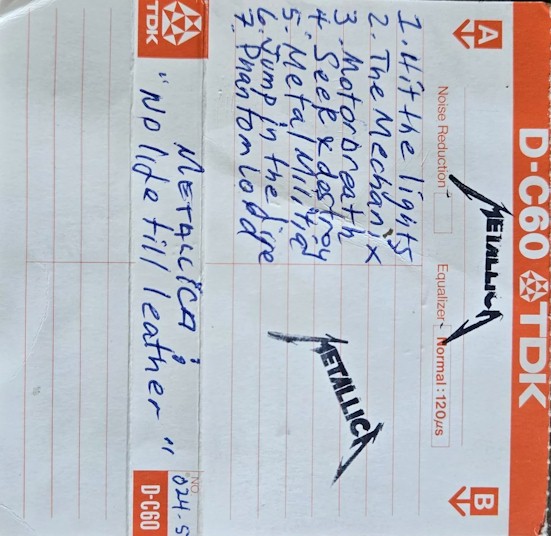 D-C60 TDK
A
B
Noise Reduction
Equalizer Normal:120μs
METALLICA
1. Hit the lights
2. The Mechanix
3 Motorbreath
4. Seek & destroy
5. Metal Militia
6. Jump in the fire
7. Phantom lord
METALLICA
TDK
METALLICA:
"No life till leather"
NO.
024-5
D-C60